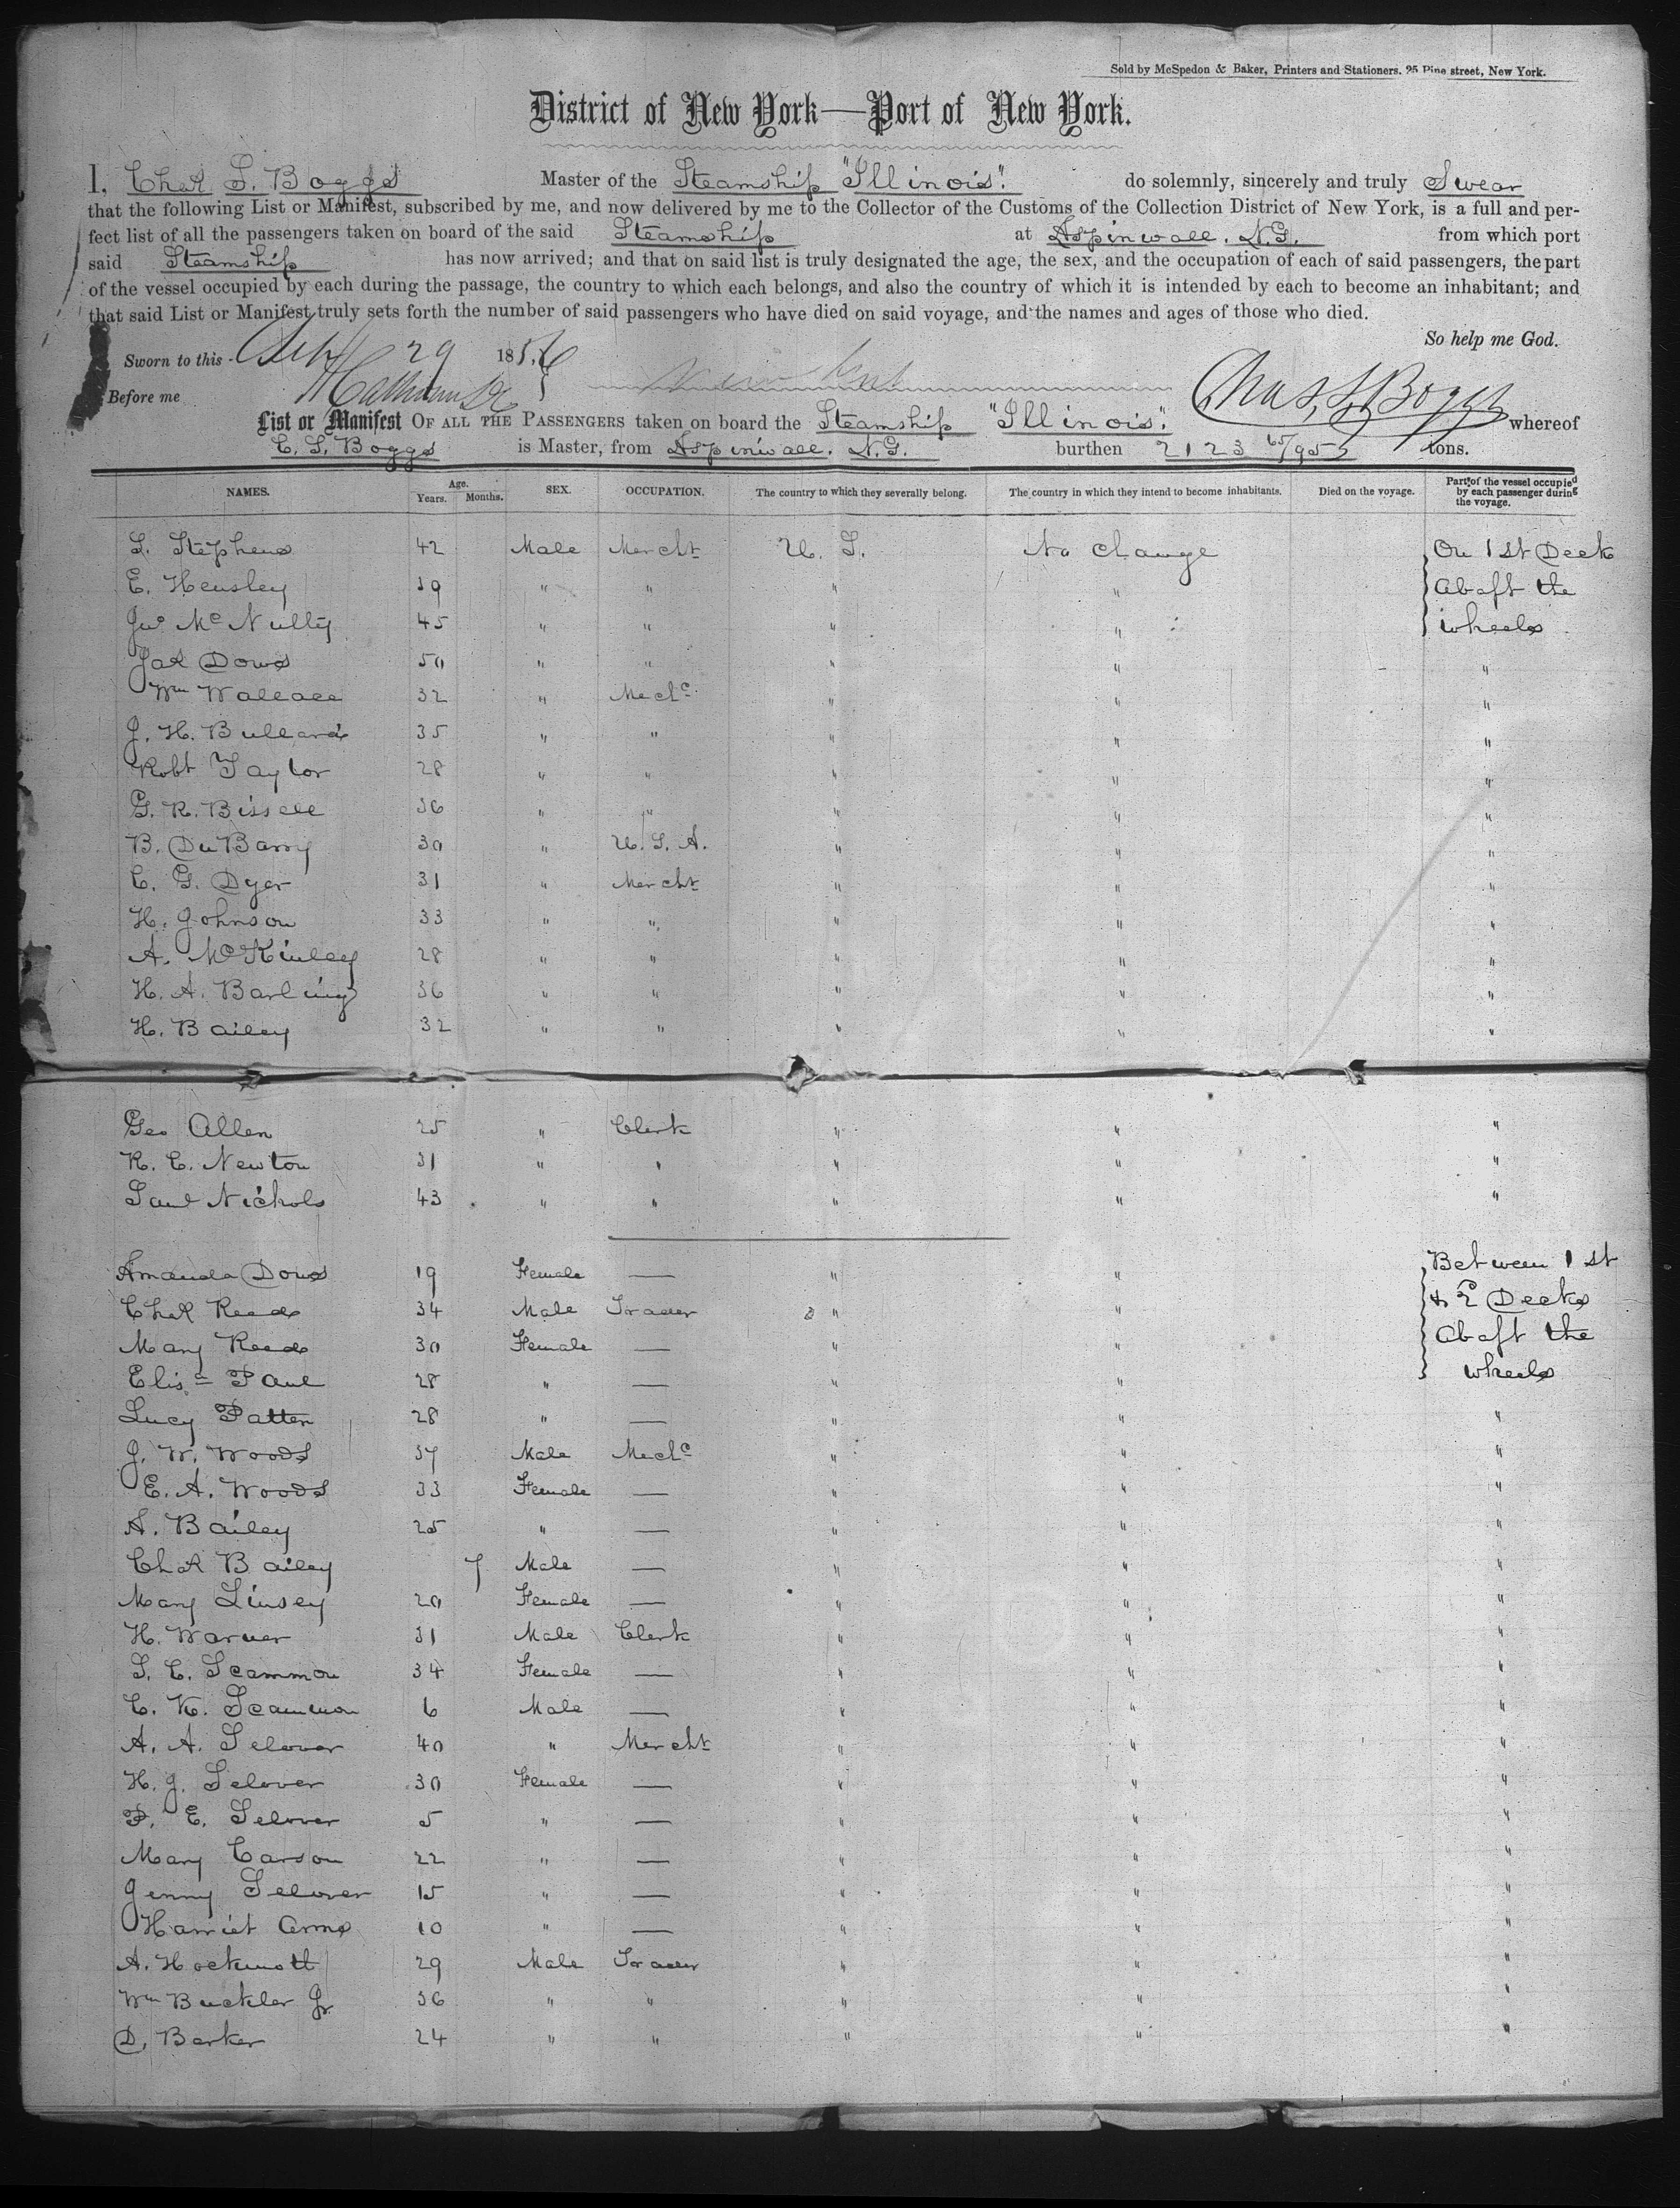 Sold by McSpedon & Baker, Printers and Stationers, 25 Pine street, New York.
District of New York—Port of New York.
I, Chas S. Boggs Master of the Steamship "Illinois". do solemnly, sincerely and truly Swear
that the following List or Manifest, subscribed by me, and now delivered by me to the Collector of the Customs of the Collection District of New York, is a full and per-
fect list of all the passengers taken on board of the said Steamship at Aspinwall. N.G. from which port
said Steamship has now arrived; and that on said list is truly designated the age, the sex, and the occupation of each of said passengers, the part
of the vessel occupied by each during the passage, the country to which each belongs, and also the country of which it is intended by each to become an inhabitant; and
that said List or Manifest truly sets forth the number of said passengers who have died on said voyage, and the names and ages of those who died.
So help me God.
Sworn to this Sept 29 1856
Before me Chas. S. Boggs
List or Manifest OF ALL THE PASSENGERS taken on board the Steamship "Illinois". whereof
C. S. Boggs is Master, from Aspinwall. N.G. burthen 2123 65/95 tons.
NAMES. Age. Years. Months. SEX. OCCUPATION. The country to which they severally belong. The country in which they intend to become inhabitants. Died on the voyage. Part of the vessel occupied by each passenger during the voyage.
S. Stephens 42 Male Mercht U. S. No Change On 1st Deck
E. Hensley 39 " " " " Abaft the
Jno McNulty 45 " " " " wheels
Jas Dows 50 " " " " "
Wm Wallace 32 " Mechc " " "
J. H. Bullard 35 " " " " "
Robt Taylor 28 " " " " "
G. R. Bissell 36 " " " " "
B. Du Barry 30 " U. S. A. " " "
C. G. Dyer 31 " Mercht " " "
H. Johnson 33 " " " " "
A. McKinley 28 " " " " "
H. A. Barling 36 " " " " "
H. Bailey 32 " " " " "
Geo Allen 25 " Clerk " " "
R. C. Newton 31 " " " " "
Saml Nichols 43 " " " " "
Amanda Dows 19 Female — " " Between 1st
Chas Reed 34 Male Trader " " & 2 Decks
Mary Reed 30 Female — " " Abaft the
Elisa Paul 28 " — " " wheels
Lucy Patten 28 " — " " "
J. W. Woods 37 Male Mechc " " "
E. A. Woods 33 Female — " " "
A. Bailey 25 " — " " "
Chas Bailey 7 Male — " " "
Mary Linsey 20 Female — " " "
H. Warner 31 Male Clerk " " "
S. C. Scammon 34 Female — " " "
C. K. Scammon 6 Male — " " "
A. A. Selover 40 " Mercht " " "
H. J. Selover 30 Female — " " "
P. E. Selover 5 " — " " "
Mary Carson 22 " — " " "
Jenny Selover 15 " — " " "
Harriet Arms 10 " — " " "
A. Hockmott 29 Male Trader " " "
Wm Buckler Jr. 36 " " " " "
D. Barker 24 " " " " "